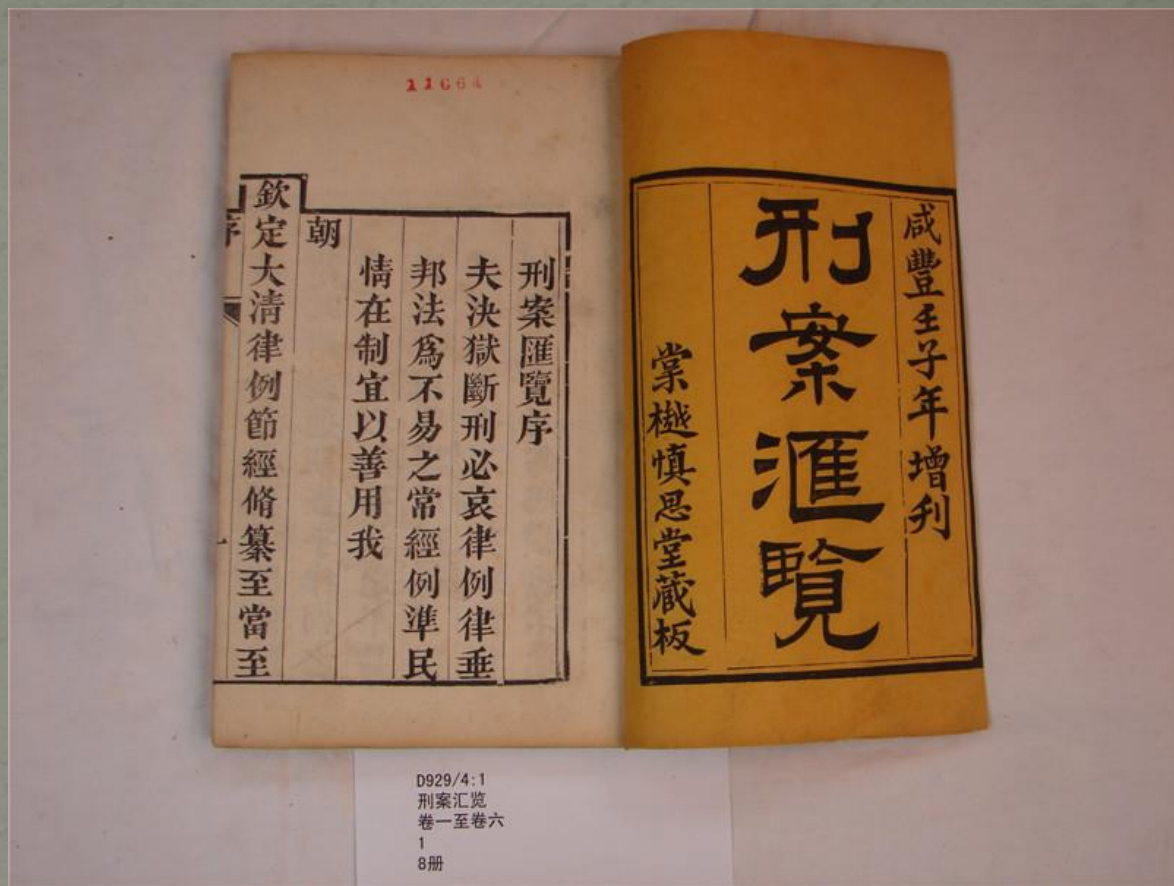 咸豐壬子年增刋
刑案滙覧
棠樾慎思堂蔵板
11664
刑案匯覽序
夫決獄斷刑必哀律例律垂
邦法爲不易之常經例準民
情在制宜以善用我
朝
欽定大清律例節經脩纂至當至
序
一
D929/4:1
刑案汇览
卷一至卷六
1
8册